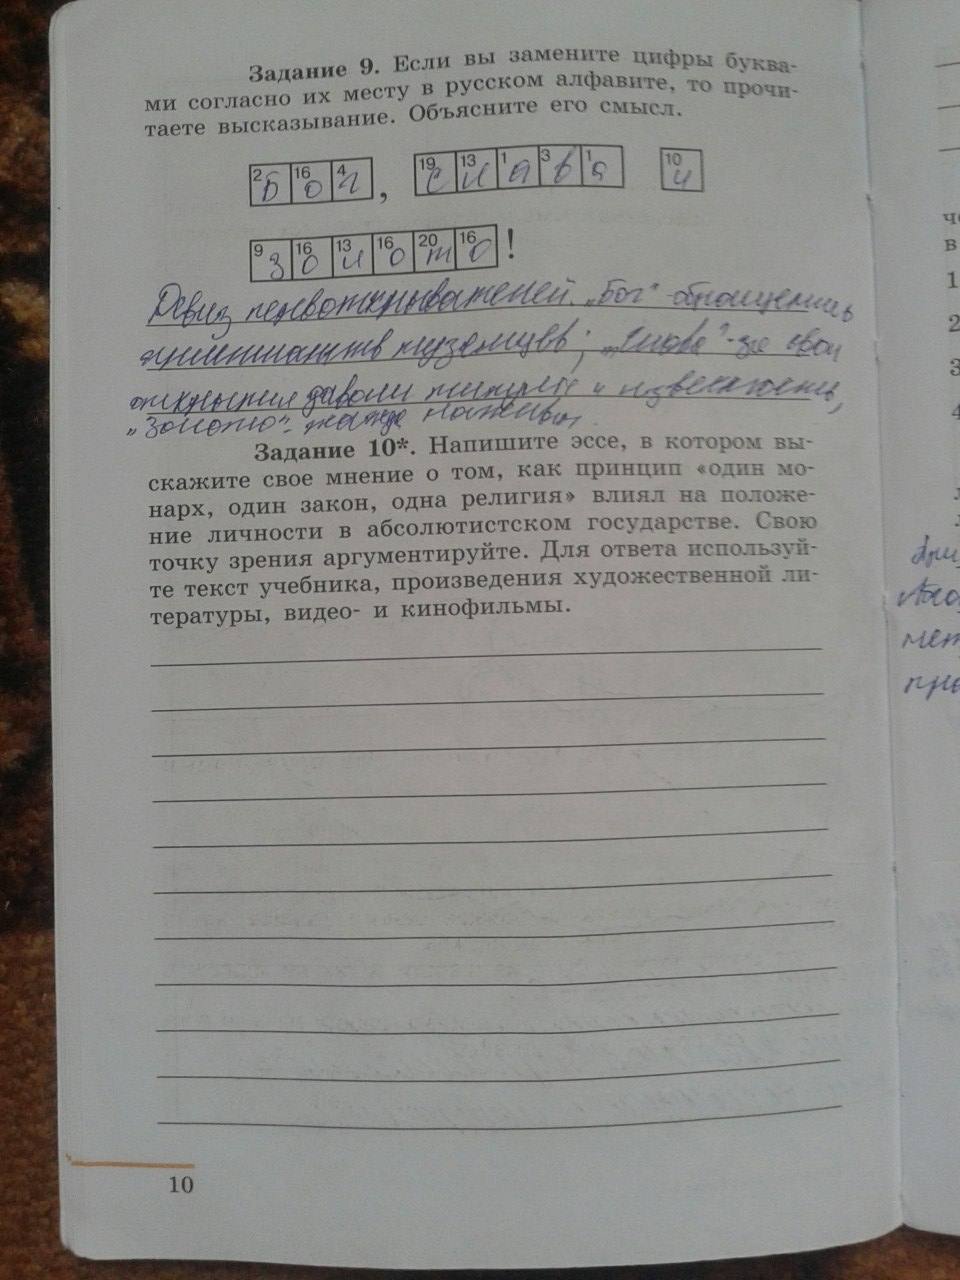 Задание 9. Если вы замените цифры буква-
ми согласно их месту в русском алфавите, то прочи-
таете высказывание. Объясните его смысл.
2 Б 16 о 4 г , 19 С 13 л 1 а 3 в 1 а 10 и
9 З 16 о 13 л 16 о 20 т 16 о !
Девиз первооткрывателей. „Бог"- обращение в
христианство туземцев; „Слава"- за свои
открытия давали титулы и известность,
„Золото"- жажда наживы.
Задание 10*. Напишите эссе, в котором вы-
скажите свое мнение о том, как принцип «один мо-
нарх, один закон, одна религия» влиял на положе-
ние личности в абсолютистском государстве. Свою
точку зрения аргументируйте. Для ответа используй-
те текст учебника, произведения художественной ли-
тературы, видео- и кинофильмы.
10
че
в
1
2
3
4